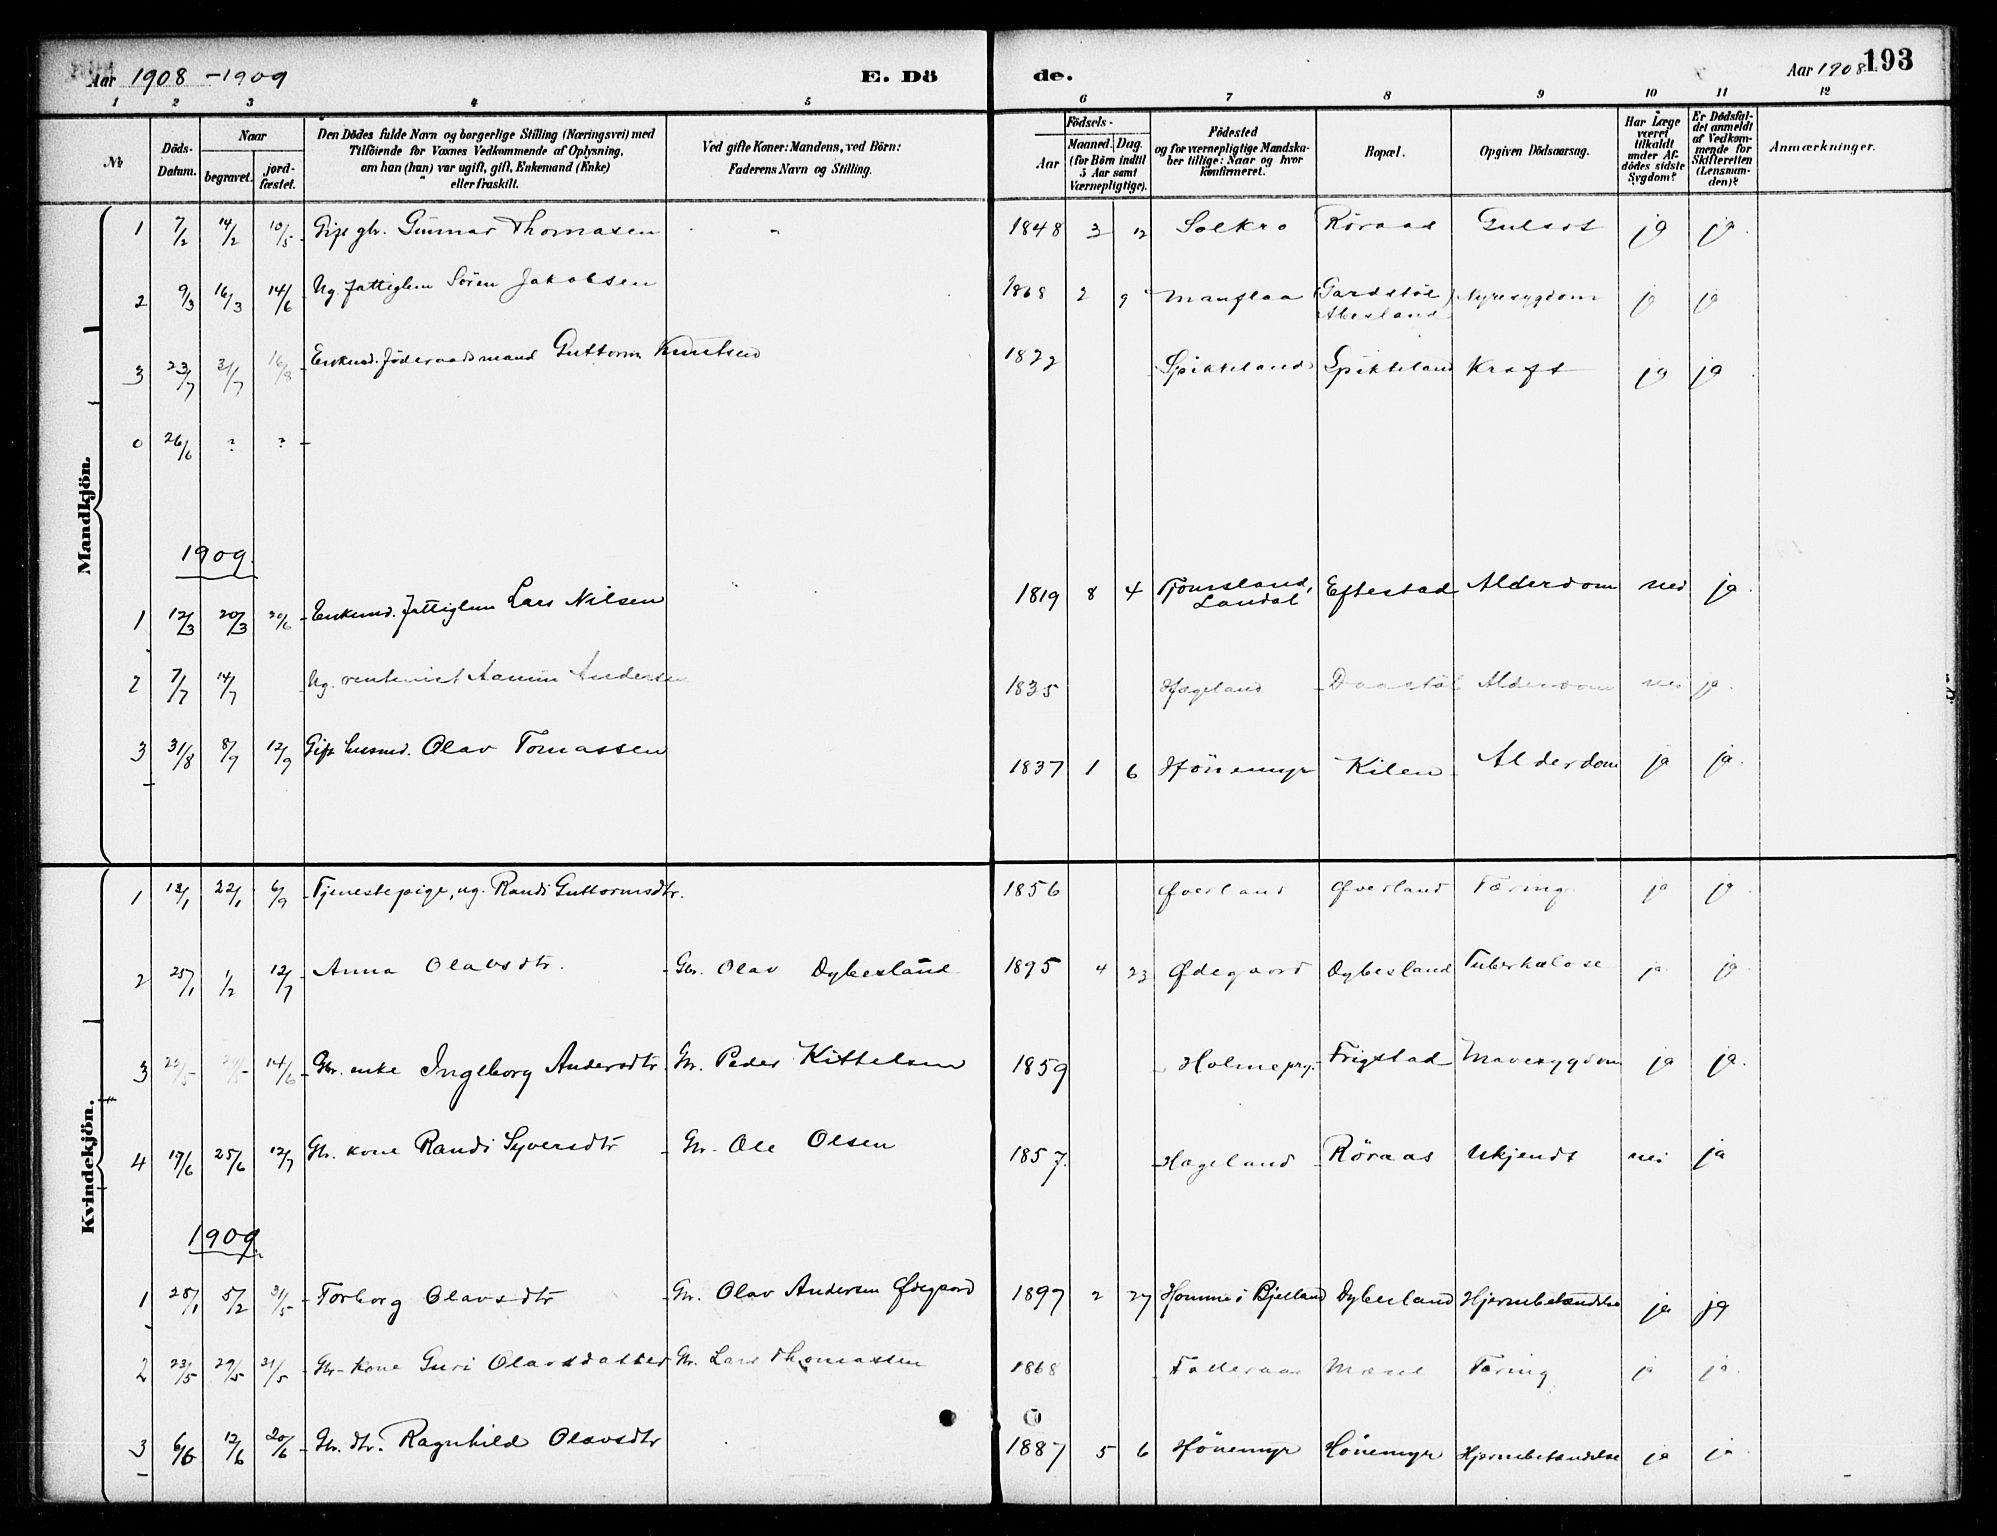 Aar 1908 - 1909 E. Dö de. Aar 1908 193
1 2 3 4 5 6 7 8 9 10 11 12
No
Döds-Datum.
Naar
begravet.
jord-fæstet.
Den Dödes fulde Navn og borgerlige Stilling (Næringsvei) med
Tilföiende for Voxnes Vedkommende af Oplysning,
om han (hun) var ugift, gift, Enkemand (Enke)
eller fraskilt.
Ved gifte Koner: Mandens, ved Börn:
Faderens Navn og Stilling.
Födsels-
Aar
Maaned. Dag.
(for Börn indtil
5 Aar samt
Værnepligtige).
Födested
og for værnepligtige Mandska-
ber tillige: Naar og hvor
konfirmeret.
Bopæl.
Opgiven Dödsaarsag.
Har Læge
været
tilkaldt
under Af-
dödes sidste
Sygdom?
Er Dödsfal-
det anmeldt
af Vedkom-
mende for
Skifteretten
(Lensman-
den)?
Anmærkninger.
Mandkjön.
1 7/2 14/2 10/5 Gift gbr. Gunnar Thomasen 1848 3 12 Solkro Röraas Gulsot ja ja
2 9/3 16/3 14/6 Ug. fattiglem Sören Jakobsen 1868 2 9 Manflaa (Gardstöl) Abesland Nyresygdom ja ja
3 23/7 31/7 16/8 Enkemd. föderaadsmand Guttorm Knutsen 1822 Spikkeland Spikkeland Kræft ja ja
0 26/6 ? ? -
1909
1 12/3 20/3 20/6 Enkemd. fattiglem Lars Nilsen 1819 8 4 Tjomsland, Laudal Eftestad Alderdom nei ja
2 7/7 14/7 Ug. rentenist Aanun Andersen 1835 Hægeland Daastöl Alderdom nei ja
3 31/8 8/9 12/9 Gift husmd. Olav Tomassen 1837 1 6 Hönemyr Kilen Alderdom ja ja
Kvindekjön.
1 13/1 22/1 6/9 Tjenestepige, ug. Randi Guttormsdtr. 1856 Øverland Øverland Tæring ja ja
2 25/1 1/2 12/7 Anna Olavsdtr. Gbr. Olav Dybesland 1895 4 23 Ødegaard Dybesland Tuberkulose ja ja
3 14/6 Gbr. enke Ingeborg Andersdtr. Gbr. Peder Kittelsen 1859 Holme prg. Frigstad Mavesygdom ja ja
4 17/6 25/6 12/7 Gbr. kone Randi Syversdtr Gbr. Ole Olsen 1857 Hægeland Röraas Ukjendt nei ja
1909
1 28/1 5/2 31/5 Torborg Olavsdtr Gbr. Olav Andersen Ødegaard 1897 2 27 Homme i Bjelland Dybesland Hjernebetændelse ja ja
2 23/5 29/5 31/5 Gbr-kone Guri Olavsdatter Gbr. Lars Thomassen 1868 Tæring ja ja
3 6/6 12/6 20/6 Gbr. dtr. Ragnhild Olavsdtr 1887 5 6 Hönemyr Hönemyr Hjernebetændelse ja ja